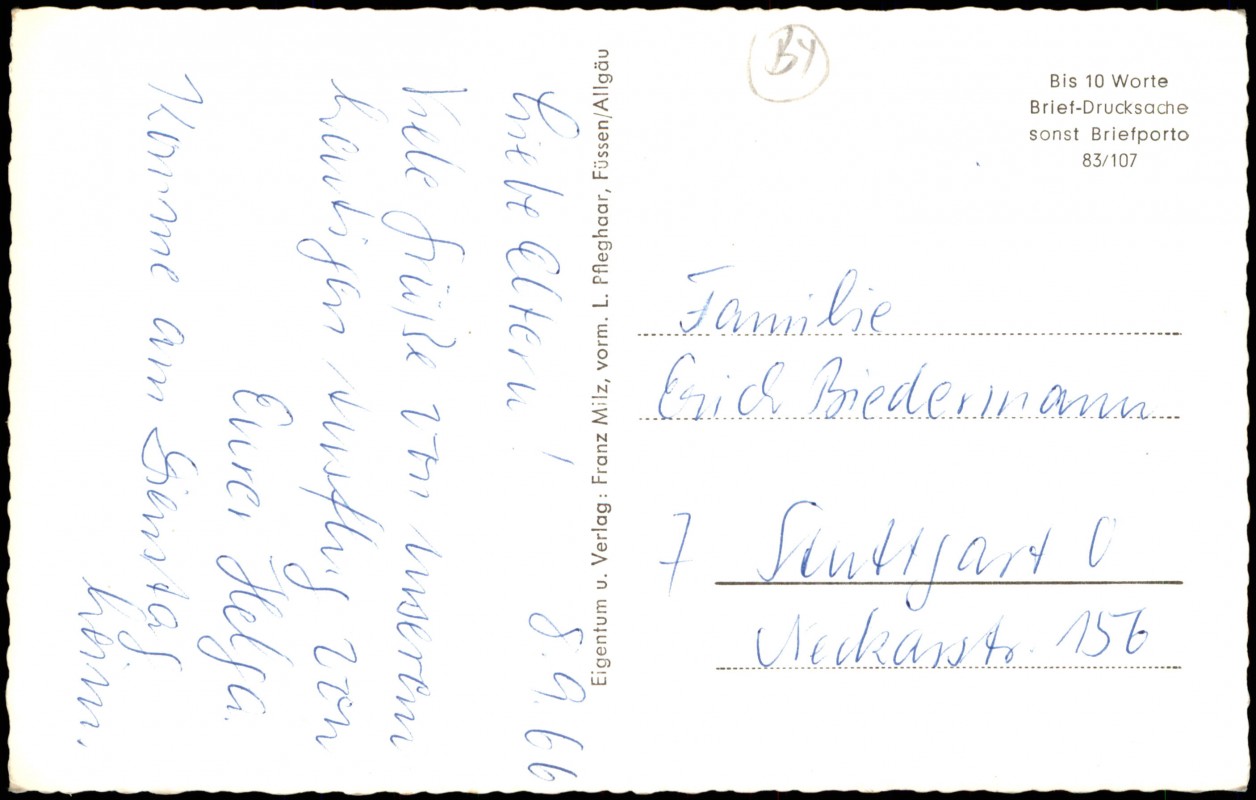 8.9.66
Liebe Eltern!
Viele Grüße von unserem
heutigen Ausflug von
Eurer Helga.
Komme am Samstag
heim.
Eigentum u. Verlag: Franz Milz, vorm. L. Pfleghaar, Füssen/Allgäu
BY
Bis 10 Worte
Brief-Drucksache
sonst Briefporto
83/107
Familie
Erich Biedermann
7 Stuttgart O
Neckarstr. 156